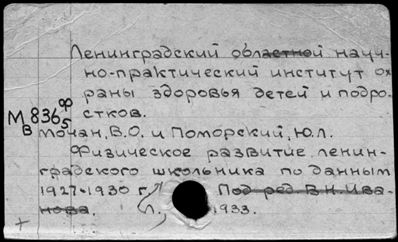 Ленинградский областной науч-
но-практический институт ох
раны здоровья детей и подро-
стков.
М 836 ф/5
В
Мочан, В.О. и Поморский, Ю.Л.
Физическое развитие ленин-
градского школьника по данным
1927-1930 г. Под ред. В.Н. Ива-
нова. Л., 1933.
+